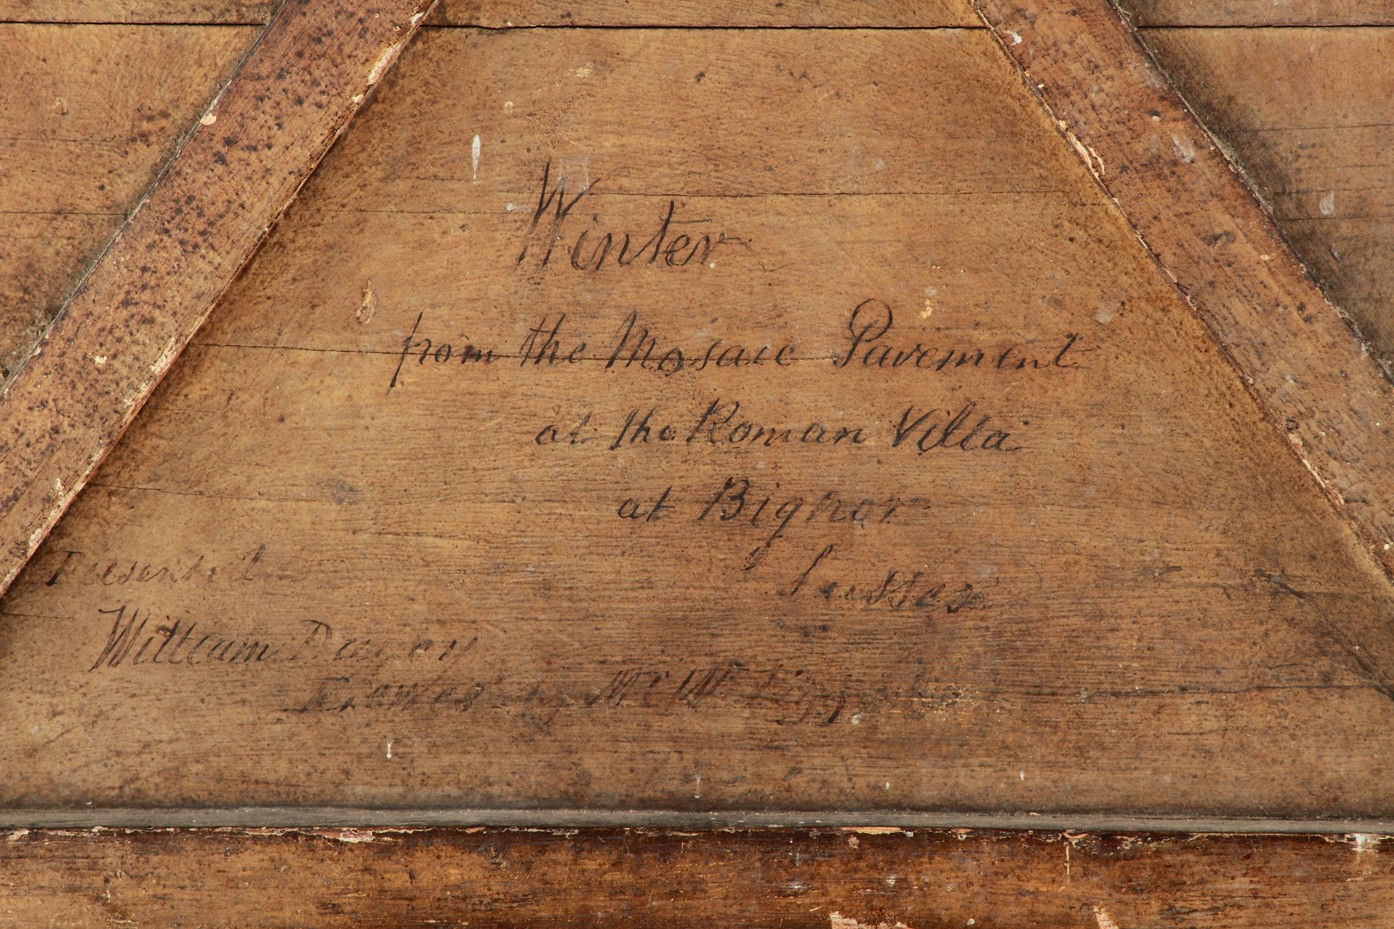 Winter
from the Mosaic Pavement
at the Roman Villa
at Bignor
Sussex
Presented
William
by Mr W